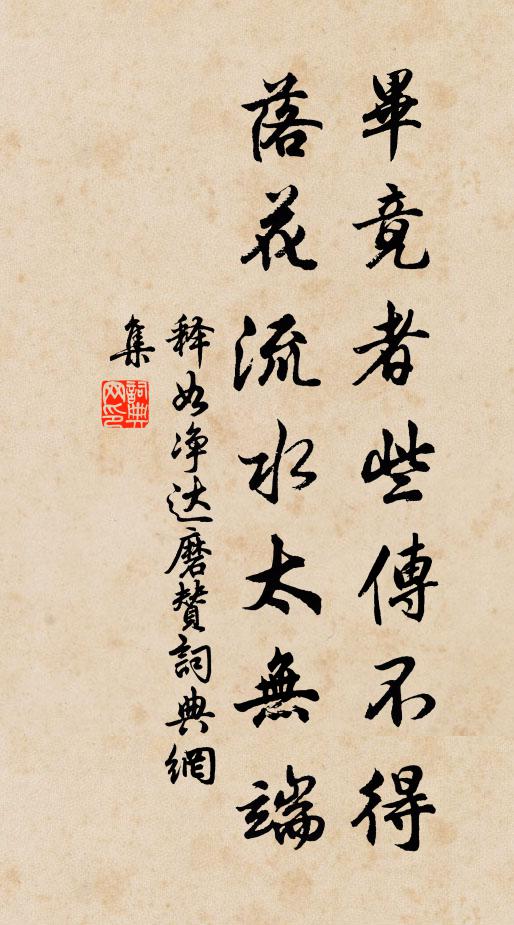 畢竟者些傳不得
落花流水太無端
释如净达磨贊詞典網
集
詞典網印